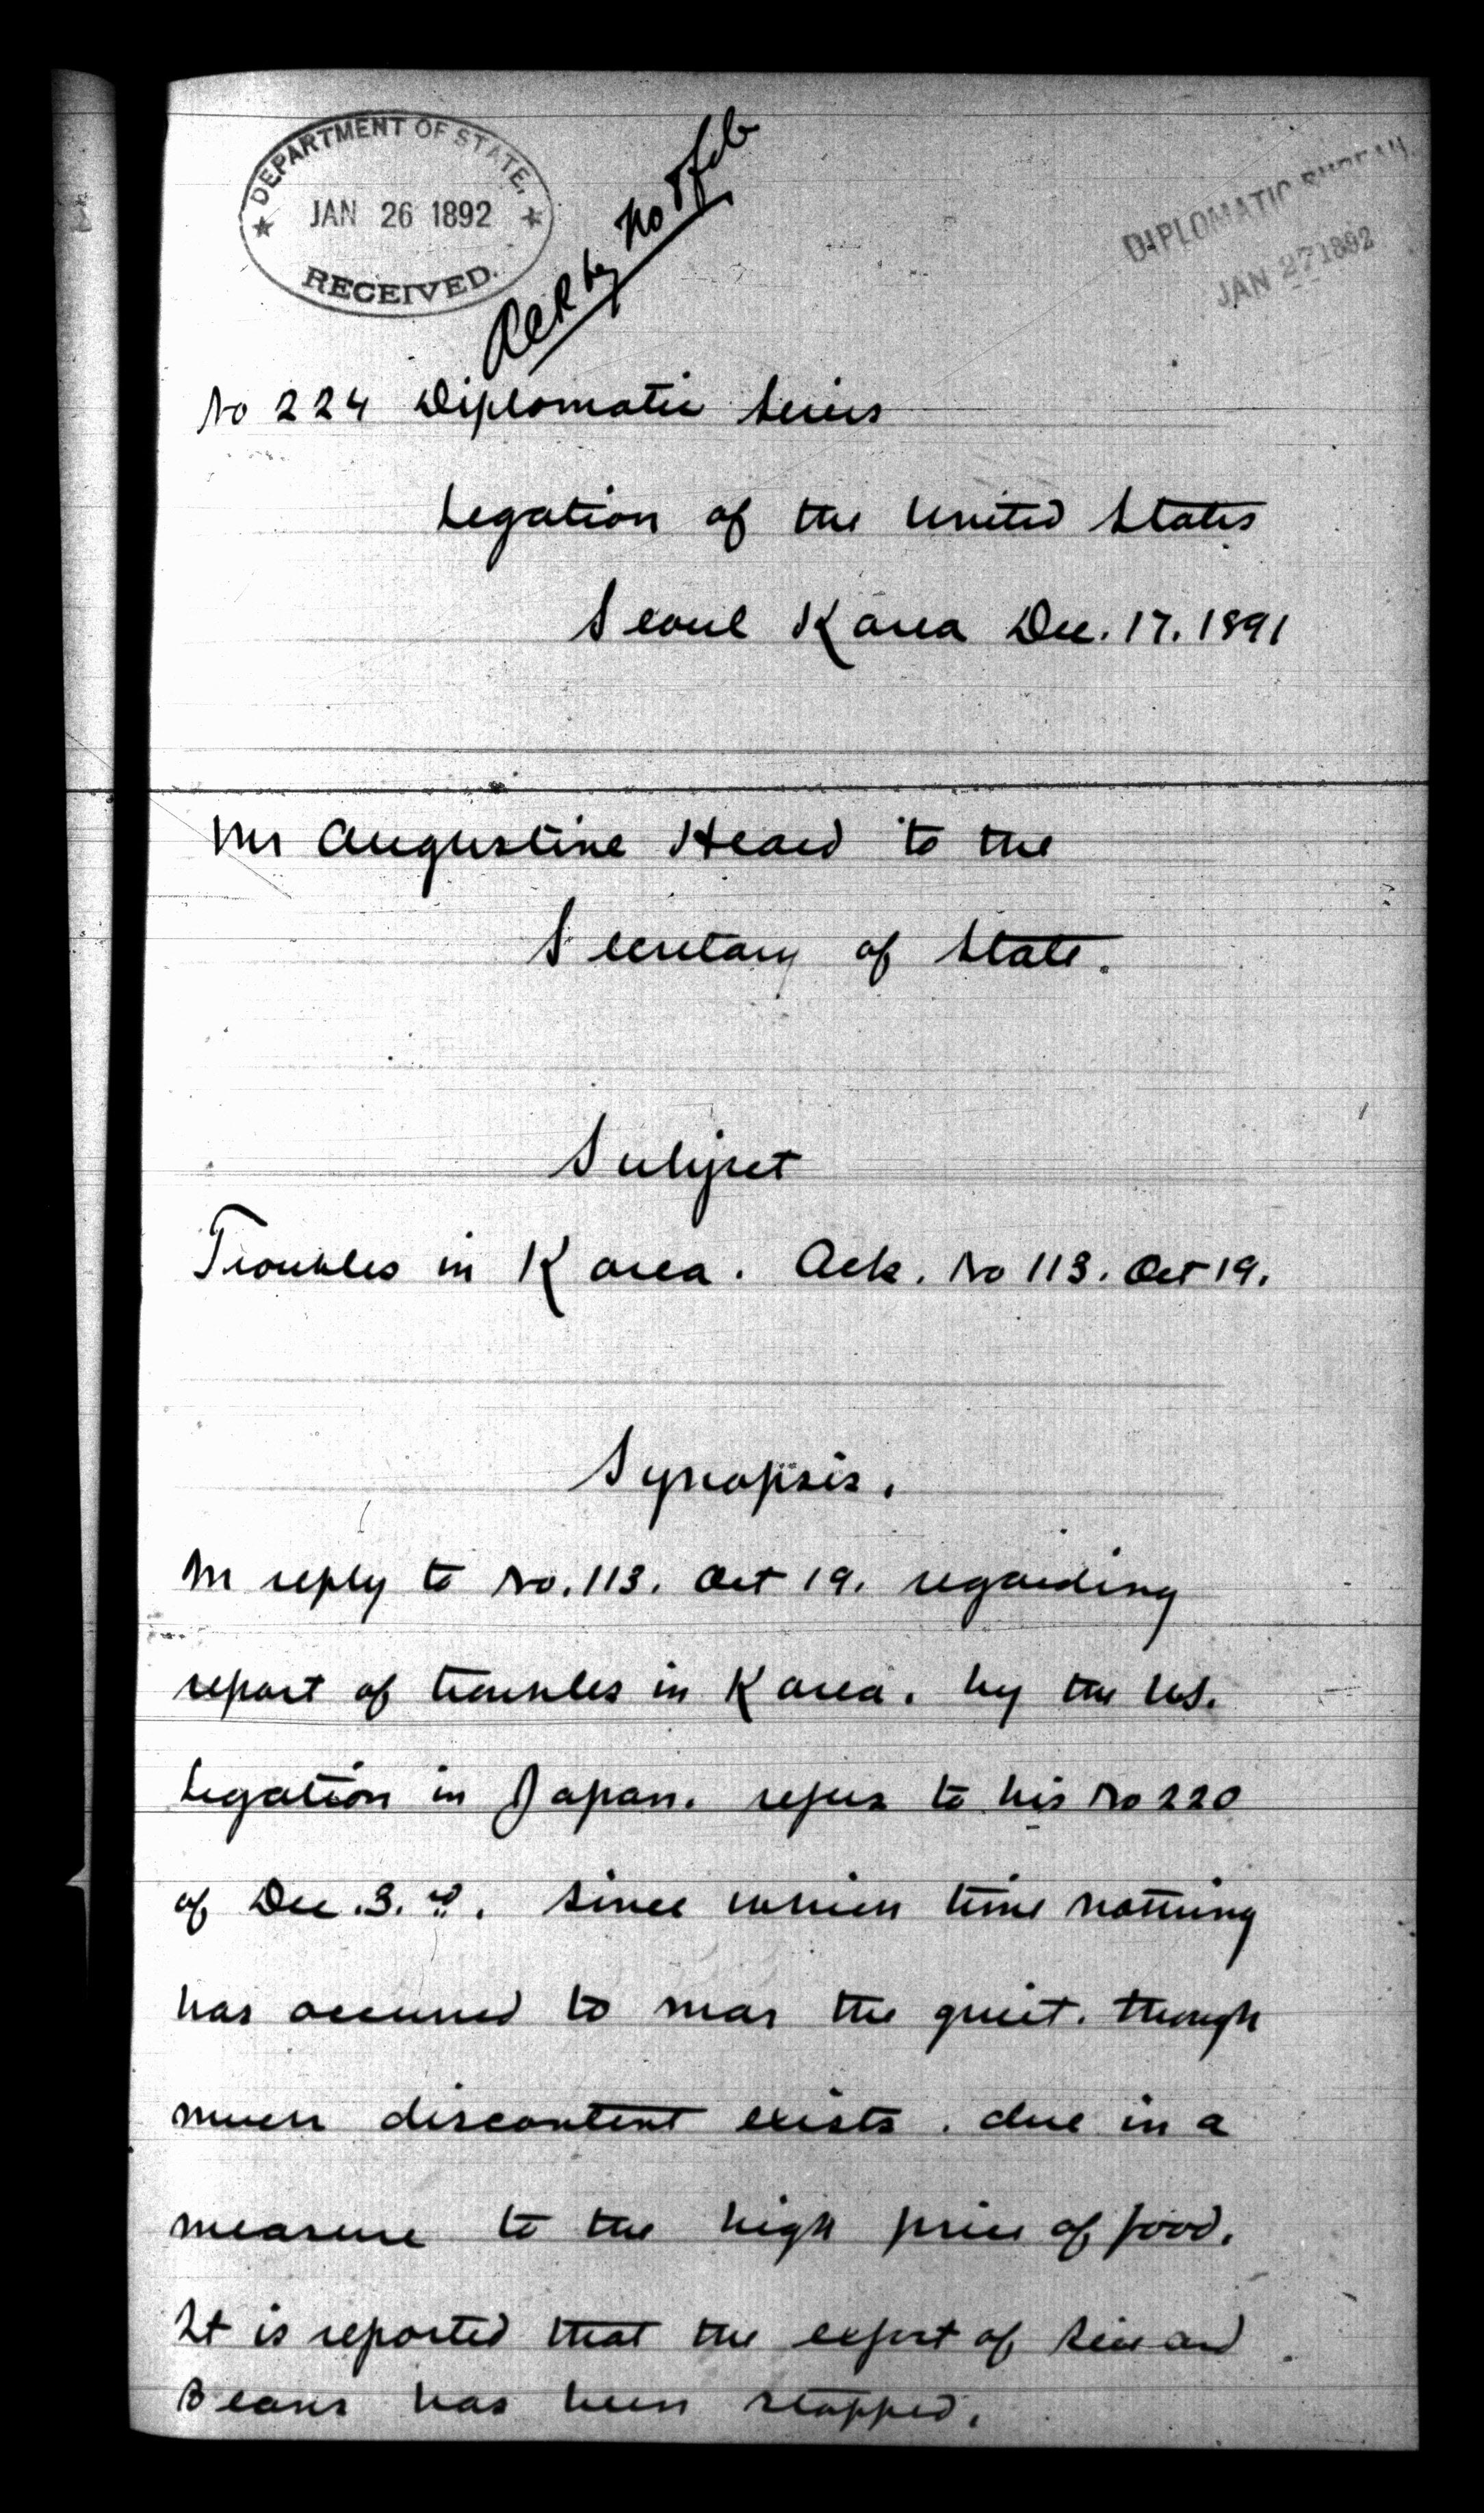 DEPARTMENT OF STATE,
JAN 26 1892
RECEIVED.
DIPLOMATIC BUREAU.
JAN 27 1892
Ack by no
No 224 Diplomatic Series
Legation of the United States
Seoul Korea Dec. 17. 1891
Mr Augustine Heard to the
Secretary of State.
Subject
Troubles in Korea. Ack. No 113. Oct 19.
Synopsis.
In reply to No. 113. Oct 19. regarding
report of troubles in Korea. by the U.S.
Legation in Japan. refers to his No 220
of Dec. 3.rd. since which time nothing
has occurred to mar the quiet. though
much discontent exists. due in a
measure to the high price of food.
It is reported that the export of Rice and
Beans has been stopped.